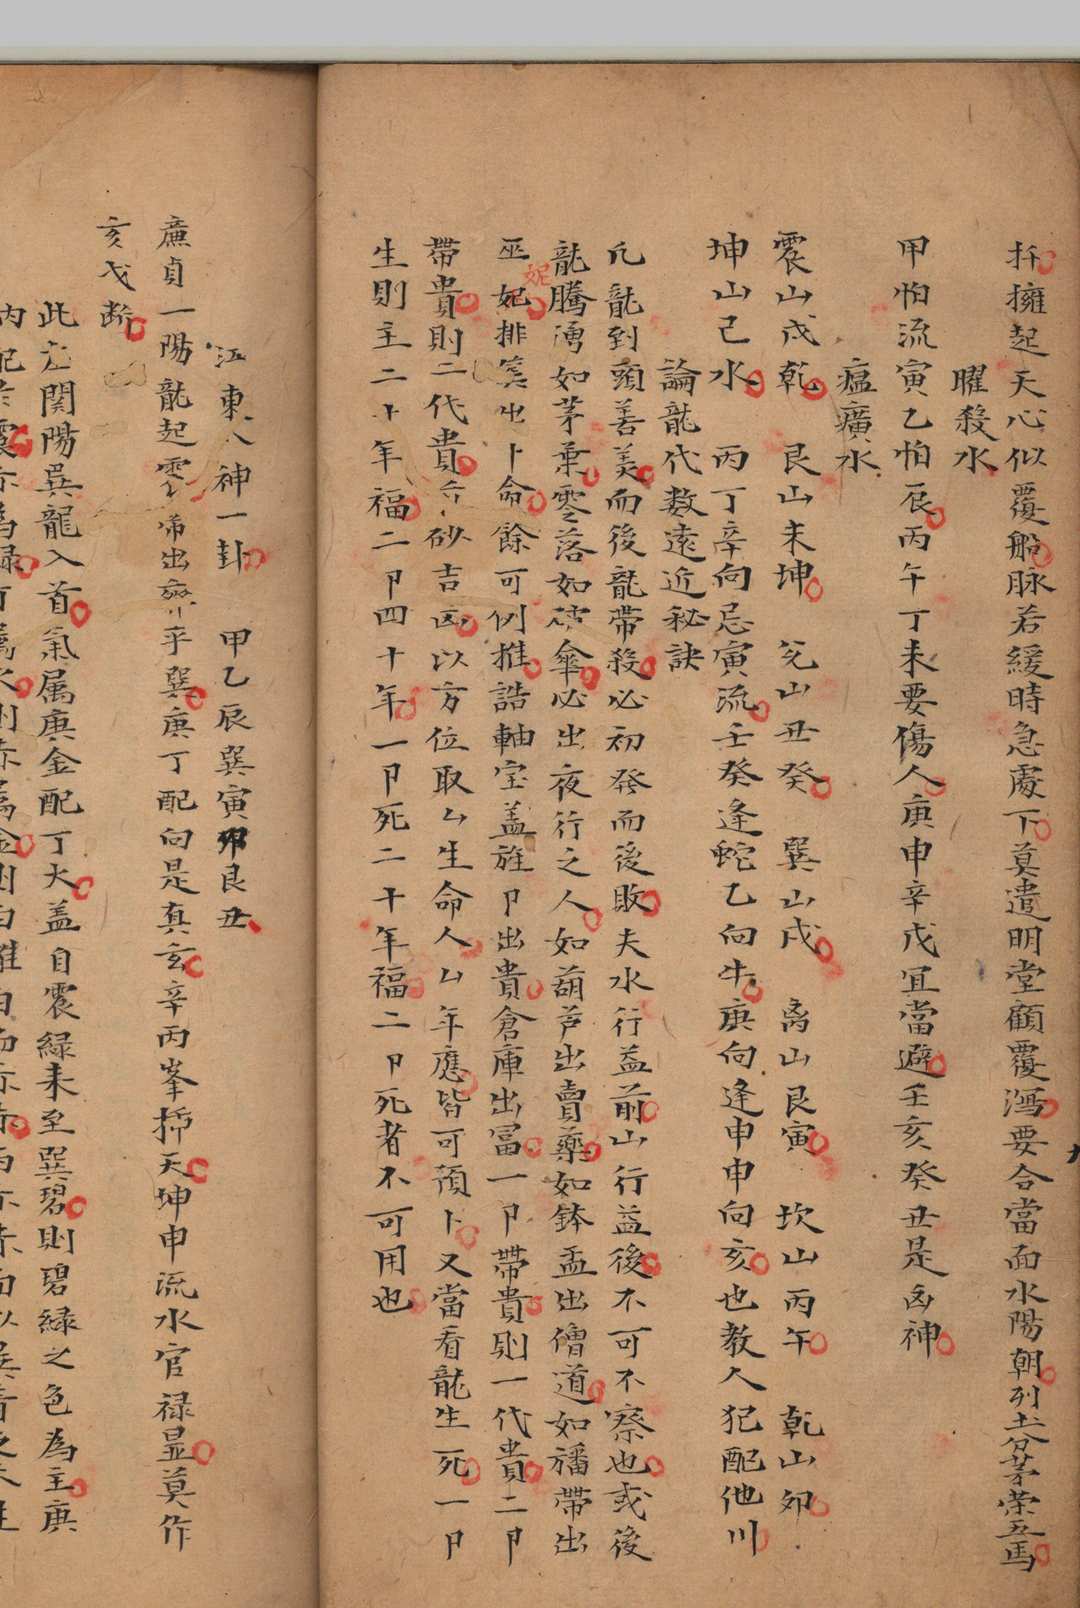 擁起天心似覆船脉若緩時急處下莫遣明堂顧覆瀉要合當面水陽朝列土分茅榮五馬
曜殺水
甲怕流寅乙怕辰丙午丁未要傷人庚申辛戌宜當避壬亥癸丑是凶神
瘟㾠水
震山戌乾　艮山未坤　兌山丑癸　巽山戌　离山艮寅　坎山丙午　乾山夘
坤山己水　丙丁辛向忌寅流壬癸逢蛇乙向牛庚向逢申申向亥也教人犯配他川
論龍代数遠近秘訣
凡龍到頭善美而後龍帶殺必初發而後敗夫水行益前山行益後不可不察也或後
龍騰湧如茅葉零落如破傘必出夜行之人如葫芦出賣藥如鉢盂出僧道如旛帶出
巫妃排筭出卜命餘可例推誥軸宝盖旌卩出貴倉庫出冨一卩帶貴則一代貴二卩
妮
帶貴則二代貴砂吉凶以方位取厶生命人厶年應皆可預卜又當看龍生死一卩
生則主二十年福二卩四十年一卩死二十年福二卩死者不可用也
江東八神一卦　甲乙辰巽寅卯艮丑
廉貞一陽龍起雲出乎巽庚丁配向是真玄辛丙峯揷天坤申流水官禄显莫作
亥戈断
此関陽巽龍入首氣属庚金配丁火盖自震緑未至巽碧則碧緑之色為主庚